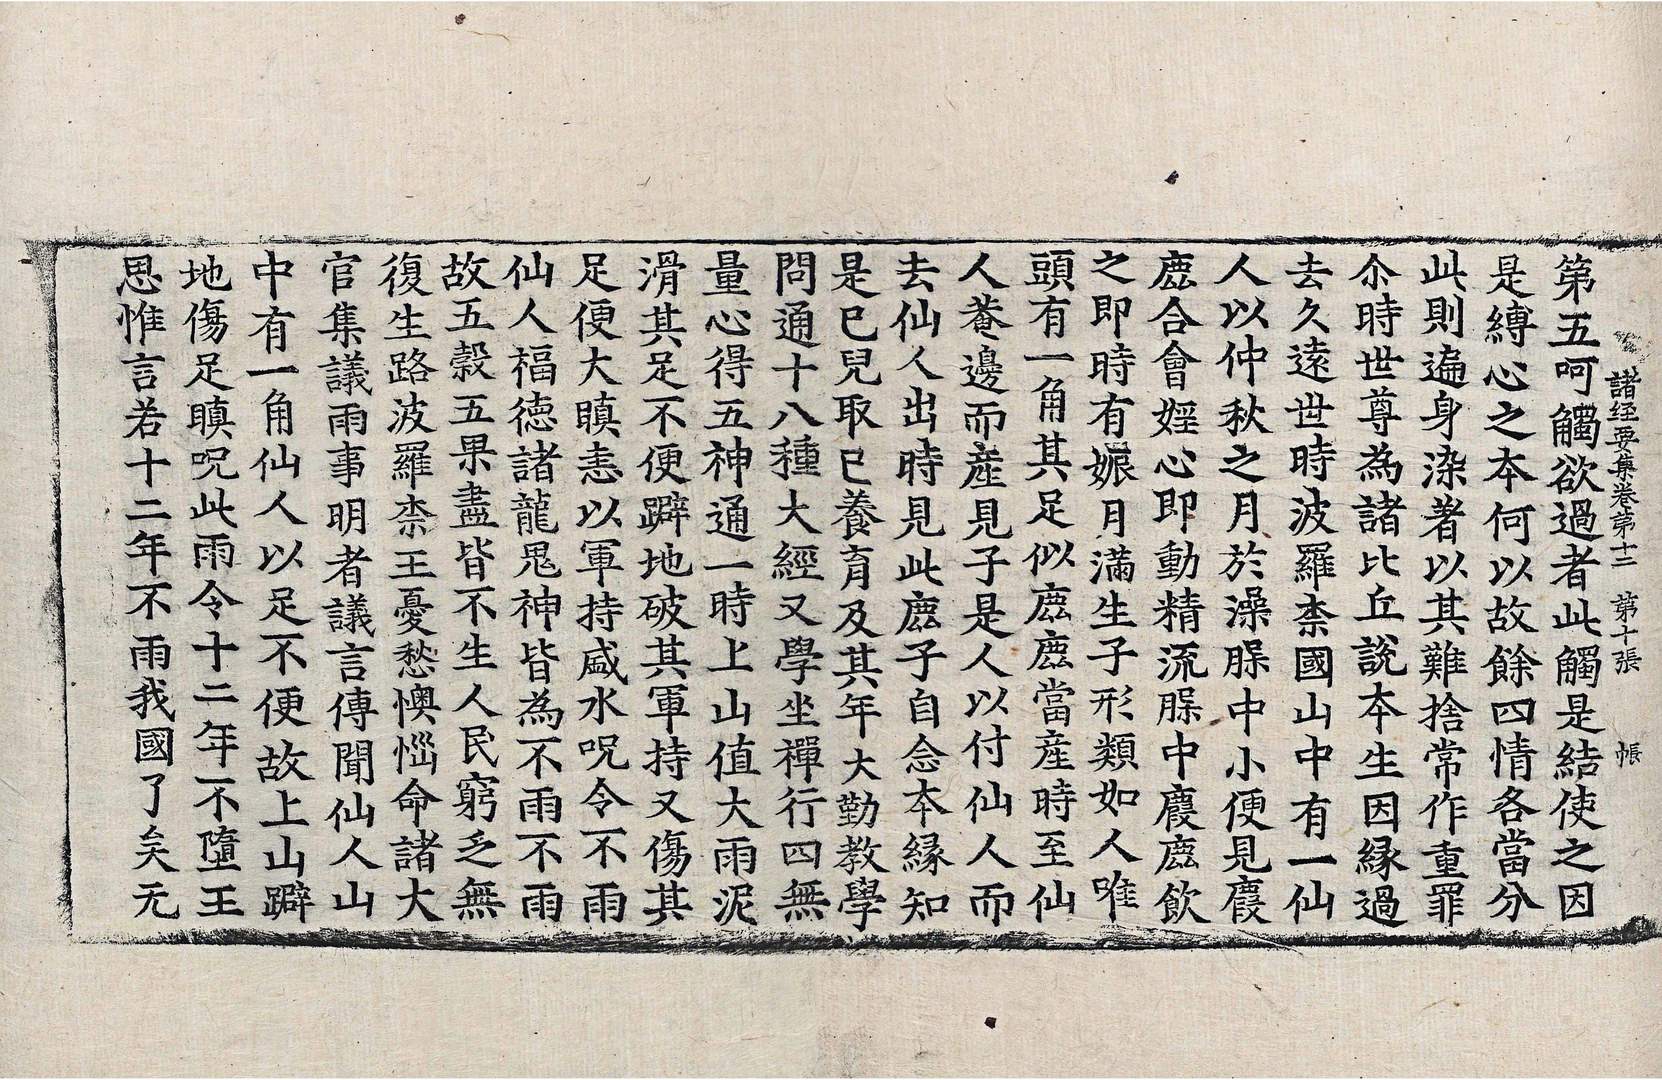 諸経要集卷第十二 第十張 帳
第五呵觸欲過者此觸是結使之因
是縛心之本何以故餘四情各當分
此則遍身染著以其難捨常作重罪
尒時世尊為諸比丘說本生因縁過
去久遠世時波羅柰國山中有一仙
人以仲秋之月於澡屎中小便見麚
麀合會婬心即動精流屎中麀飲
之即時有娠月滿生子形類如人唯
頭有一角其足似麀麀當産時至仙
人菴邊而産見子是人以付仙人而
去仙人出時見此麀子自念本縁知
是已兒取已養育及其年大勤教學
問通十八種大經又學坐禪行四無
量心得五神通一時上山值大雨泥
滑其足不便躃地破其軍持又傷其
足便大瞋恚以軍持盛水呪令不雨
仙人福徳諸龍鬼神皆為不雨不雨
故五穀五果盡皆不生人民窮乏無
復生路波羅柰王憂愁懊惱命諸大
官集議雨事明者議言傳聞仙人山
中有一角仙人以足不便故上山躃
地傷足瞋呪此雨令十二年不墮王
思惟言若十二年不雨我國了矣无